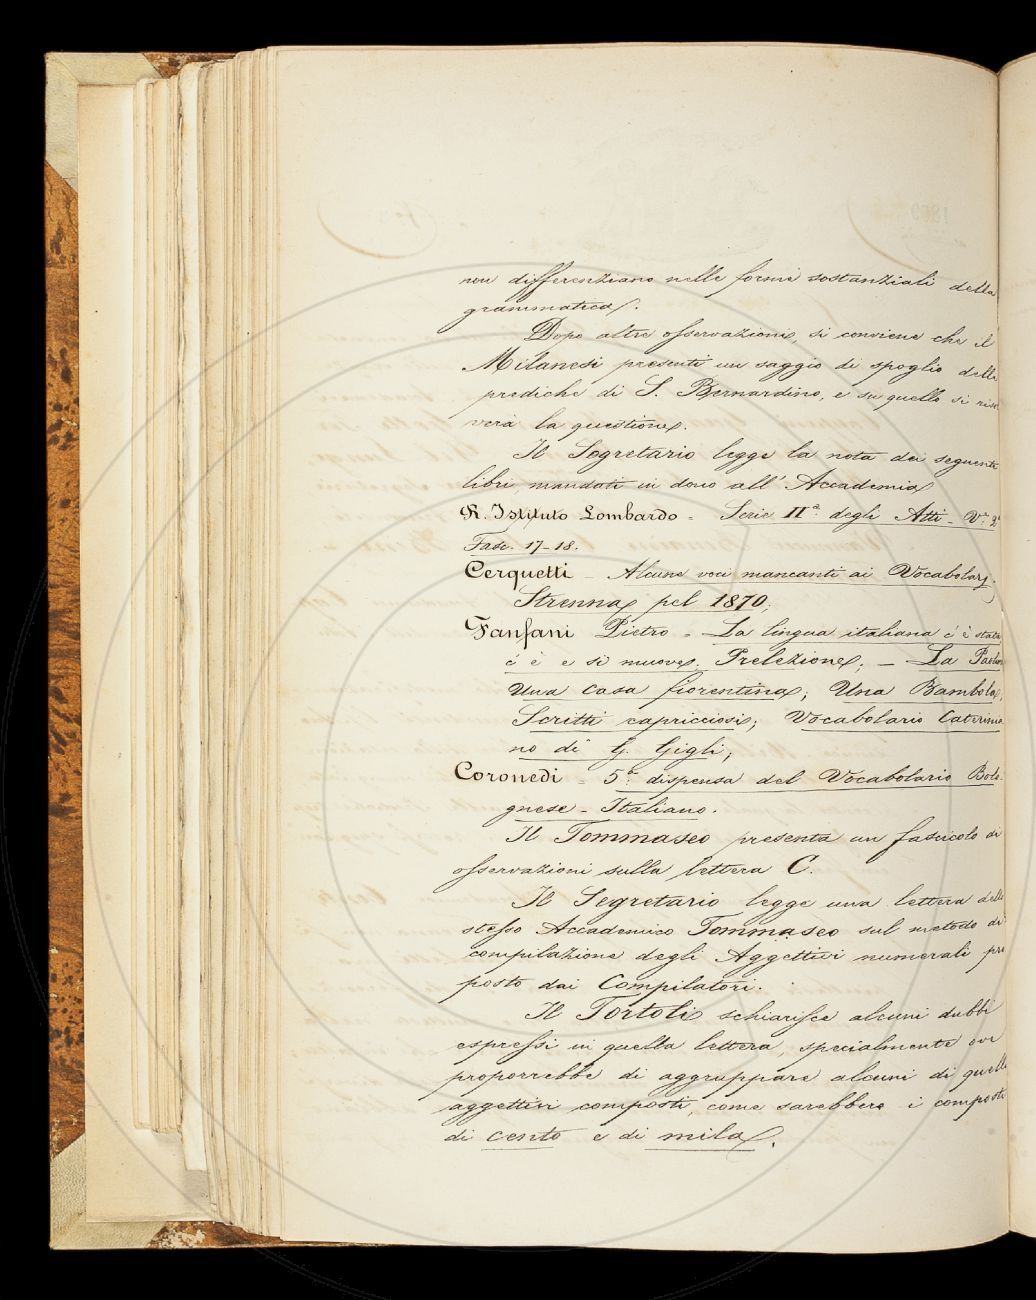 non differenziano nelle forme sostanziali della
grammatica.
Dopo altre osservazioni, si conviene che il
Milanesi presenti un saggio di spoglio delle
prediche di S. Bernardino, e su quello si risol
verà la questione.
Il Segretario legge la nota dei seguenti
libri, mandati in dono all'Accademia
R. Istituto Lombardo - Serie IIa. degli Atti - Vo. 2o
Fasc. 17-18.
Cerquetti - Alcune voci mancanti ai Vocabolarj.
Strenna pel 1870;
Fanfani Pietro - La lingua italiana c'è stata
c'è e si muove; Prelezione; - La Paolina
Una casa fiorentina; Una Bambola,
Scritti capricciosi; Vocabolario Caterinia
no di G. Gigli;
Coronedi - 5a. dispensa del Vocabolario Bolo-
gnese-Italiano.
Il Tommaseo presenta un fascicolo di
osservazioni sulla lettera C.
Il Segretario legge una lettera dello
stesso Accademico Tommaseo sul metodo di
compilazione degli Aggettivi numerali pro
posto dai Compilatori.
Il Tortoli schiarisce alcuni dubbi
espressi in quella lettera, specialmente ove
proporrebbe di aggruppare alcuni di quelli
aggettivi composti, come sarebbero i composti
di cento e di mila.